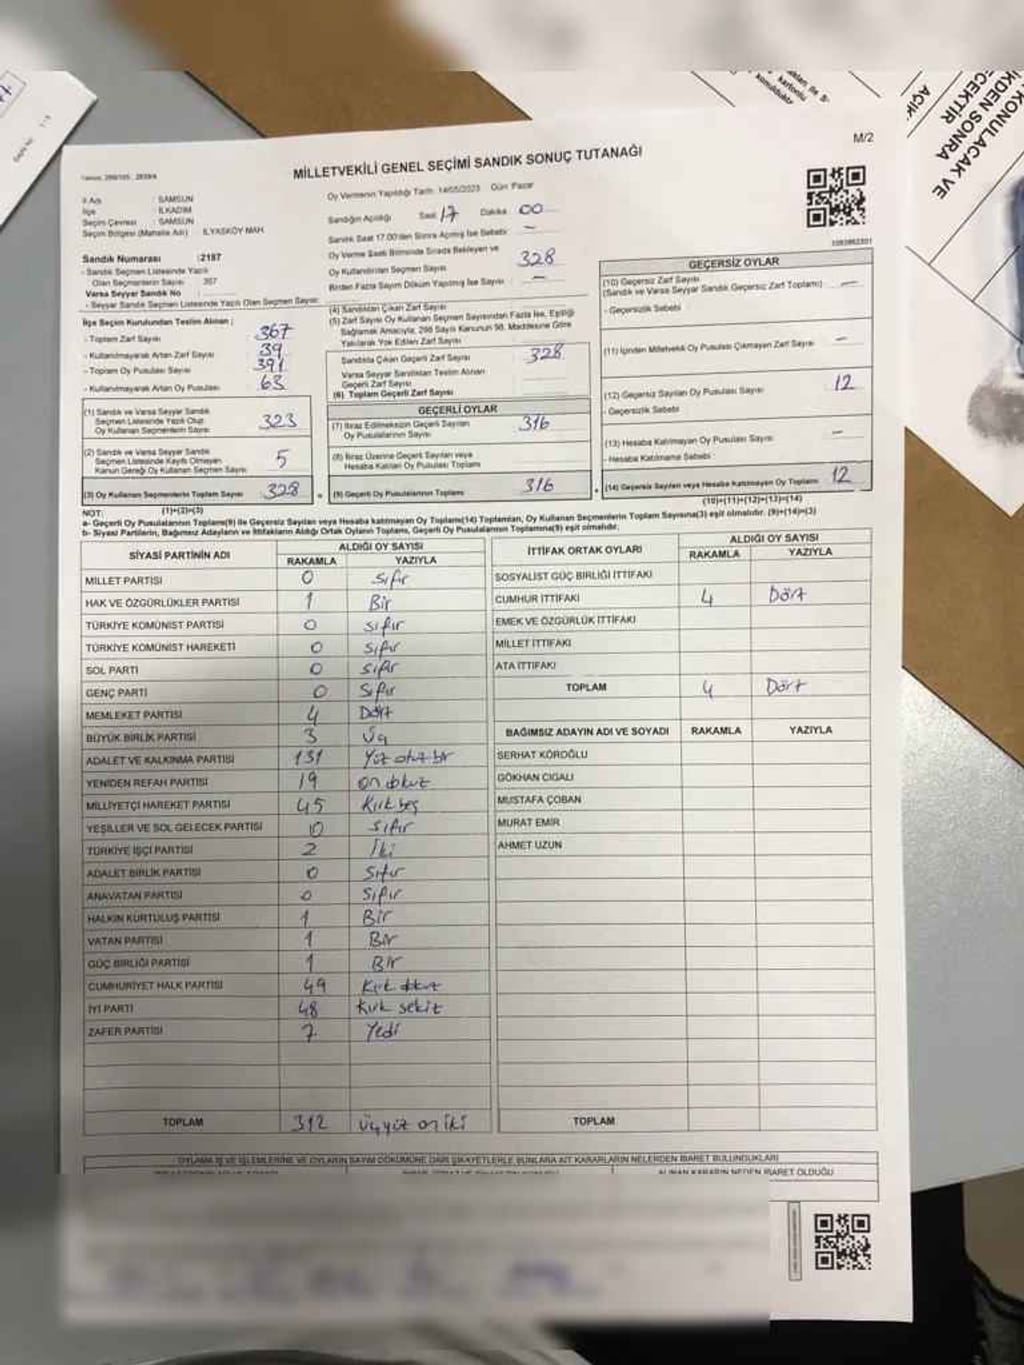 M/2
MİLLETVEKİLİ GENEL SEÇİMİ SANDIK SONUÇ TUTANAĞI
İl Adı : SAMSUN
İlçe : İLKADIM
Seçim Çevresi : SAMSUN
Seçim Bölgesi (Mahalle Adı) : İLYASKÖY MAH.
Sandık Numarası : 2187
- Sandık Seçmen Listesinde Yazılı
Olan Seçmenlerin Sayısı
Varsa Seyyar Sandık No :
- Seyyar Sandık Seçmen Listesinde Yazılı Olan Seçmen Sayısı:
İlçe Seçim Kurulundan Teslim Alınan ;
- Toplam Zarf Sayısı 367
- Kullanılmayarak Artan Zarf Sayısı 39
- Toplam Oy Pusulası Sayısı 391
- Kullanılmayarak Artan Oy Pusulası 63
(1) Sandık ve Varsa Seyyar Sandık
Seçmen Listesinde Yazılı Olup
Oy Kullanan Seçmenlerin Sayısı 323
(2) Sandık ve Varsa Seyyar Sandık
Seçmen Listesinde Kayıtlı Olmayan
Kanun Gereği Oy Kullanan Seçmen Sayısı 5
(3) Oy Kullanan Seçmenlerin Toplam Sayısı 328
(1)+(2)=(3)
Oy Vermenin Yapıldığı Tarih: 14/05/2023 Gün Pazar
Sandığın Açıldığı Saat 17 Dakika 00
Sandık Saat 17.00'den Sonra Açılmış İse Sebebi: —
Oy Verme Saati Bitiminde Sırada Bekleyen ve
Oy Kullandırılan Seçmen Sayısı 328
Birden Fazla Sayım Döküm Yapılmış İse Sayısı : —
(4) Sandıktan Çıkan Zarf Sayısı
(5) Zarf Sayısı Oy Kullanan Seçmen Sayısından Fazla İse, Eşitliği
Sağlamak Amacıyla, 298 Sayılı Kanunun 98. Maddesine Göre
Yakılarak Yok Edilen Zarf Sayısı
Sandıkta Çıkan Geçerli Zarf Sayısı 328
Varsa Seyyar Sandıktan Teslim Alınan
Geçerli Zarf Sayısı
(6) Toplam Geçerli Zarf Sayısı
GEÇERLİ OYLAR
(7) İtiraz Edilmeksizin Geçerli Sayılan
Oy Pusulalarının Sayısı 316
(8) İtiraz Üzerine Geçerli Sayılan veya
Hesaba Katılan Oy Pusulası Toplamı
(9) Geçerli Oy Pusulalarının Toplamı 316
GEÇERSİZ OYLAR
(10) Geçersiz Zarf Sayısı
(Sandık ve Varsa Seyyar Sandık Geçersiz Zarf Toplamı) : —
- Geçersizlik Sebebi
(11) İçinden Milletvekili Oy Pusulası Çıkmayan Zarf Sayısı —
(12) Geçersiz Sayılan Oy Pusulası Sayısı 12
- Geçersizlik Sebebi
(13) Hesaba Katılmayan Oy Pusulası Sayısı —
- Hesaba Katılmama Sebebi :
(14) Geçersiz Sayılan veya Hesaba katılmayan Oy Toplamı 12
(10)+(11)+(12)+(13)=(14)
NOT:
a- Geçerli Oy Pusulalarının Toplamı(9) ile Geçersiz Sayılan veya Hesaba katılmayan Oy Toplamı(14) Toplamları, Oy Kullanan Seçmenlerin Toplam Sayısına(3) eşit olmalıdır. (9)+(14)=(3)
b- Siyasi Partilerin, Bağımsız Adayların ve İttifakların Aldığı Ortak Oyların Toplamı, Geçerli Oy Pusulalarının Toplamına(9) eşit olmalıdır.
SİYASİ PARTİNİN ADI ALDIĞI OY SAYISI
RAKAMLA YAZIYLA
MİLLET PARTİSİ 0 sıfır
HAK VE ÖZGÜRLÜKLER PARTİSİ 1 Bir
TÜRKİYE KOMÜNİST PARTİSİ 0 sıfır
TÜRKİYE KOMÜNİST HAREKETİ 0 sıfır
SOL PARTİ 0 sıfır
GENÇ PARTİ 0 sıfır
MEMLEKET PARTİSİ 4 Dört
BÜYÜK BİRLİK PARTİSİ 3 Üç
ADALET VE KALKINMA PARTİSİ 131 Yüz otuz bir
YENİDEN REFAH PARTİSİ 19 on dokuz
MİLLİYETÇİ HAREKET PARTİSİ 45 Kırk beş
YEŞİLLER VE SOL GELECEK PARTİSİ 0 sıfır
TÜRKİYE İŞÇİ PARTİSİ 2 İki
ADALET BİRLİK PARTİSİ 0 Sıfır
ANAVATAN PARTİSİ 0 Sıfır
HALKIN KURTULUŞ PARTİSİ 1 Bir
VATAN PARTİSİ 1 Bir
GÜÇ BİRLİĞİ PARTİSİ 1 Bir
CUMHURİYET HALK PARTİSİ 49 Kırk dokuz
İYİ PARTİ 48 Kırk sekiz
ZAFER PARTİSİ 7 Yedi
TOPLAM 312 Üçyüz on iki
İTTİFAK ORTAK OYLARI ALDIĞI OY SAYISI
RAKAMLA YAZIYLA
SOSYALİST GÜÇ BİRLİĞİ İTTİFAKI
CUMHUR İTTİFAKI 4 Dört
EMEK VE ÖZGÜRLÜK İTTİFAKI
MİLLET İTTİFAKI
ATA İTTİFAKI
TOPLAM 4 Dört
BAĞIMSIZ ADAYIN ADI VE SOYADI RAKAMLA YAZIYLA
SERHAT KÖROĞLU
GÖKHAN CIGALI
MUSTAFA ÇOBAN
MURAT EMİR
AHMET UZUN
TOPLAM
OYLAMA İŞ VE İŞLEMLERİNE VE OYLARIN SAYIM DÖKÜMÜNE DAİR ŞİKAYETLERLE BUNLARA AİT KARARLARIN NELERDEN İBARET BULUNDUKLARI
ALINAN KARARIN NEDEN İBARET OLDUĞU
KONULACAK VE
KDEN SONRA
CEKTİR